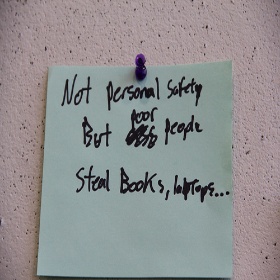 Not personal safety
But poor people
Steal Books, laptops...